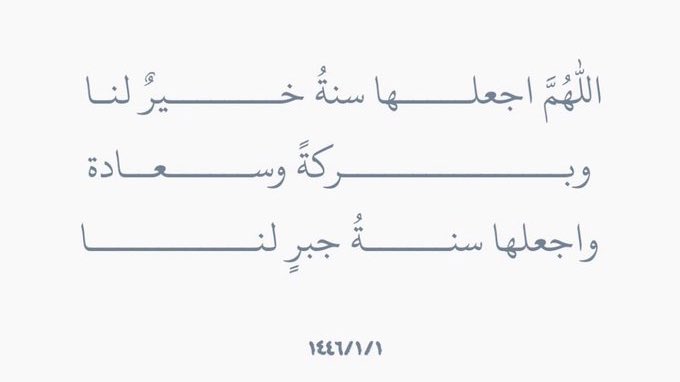 اللّٰهُمَّ اجعلـــــها سنةُ خـــــــــيرٌ لنـا
وبـــــــــــــــركةً وســـــــــعـــادة
واجعلها سنــــــــةُ جبرٍ لنـــــــــــــا
١٤٤٦/١/١